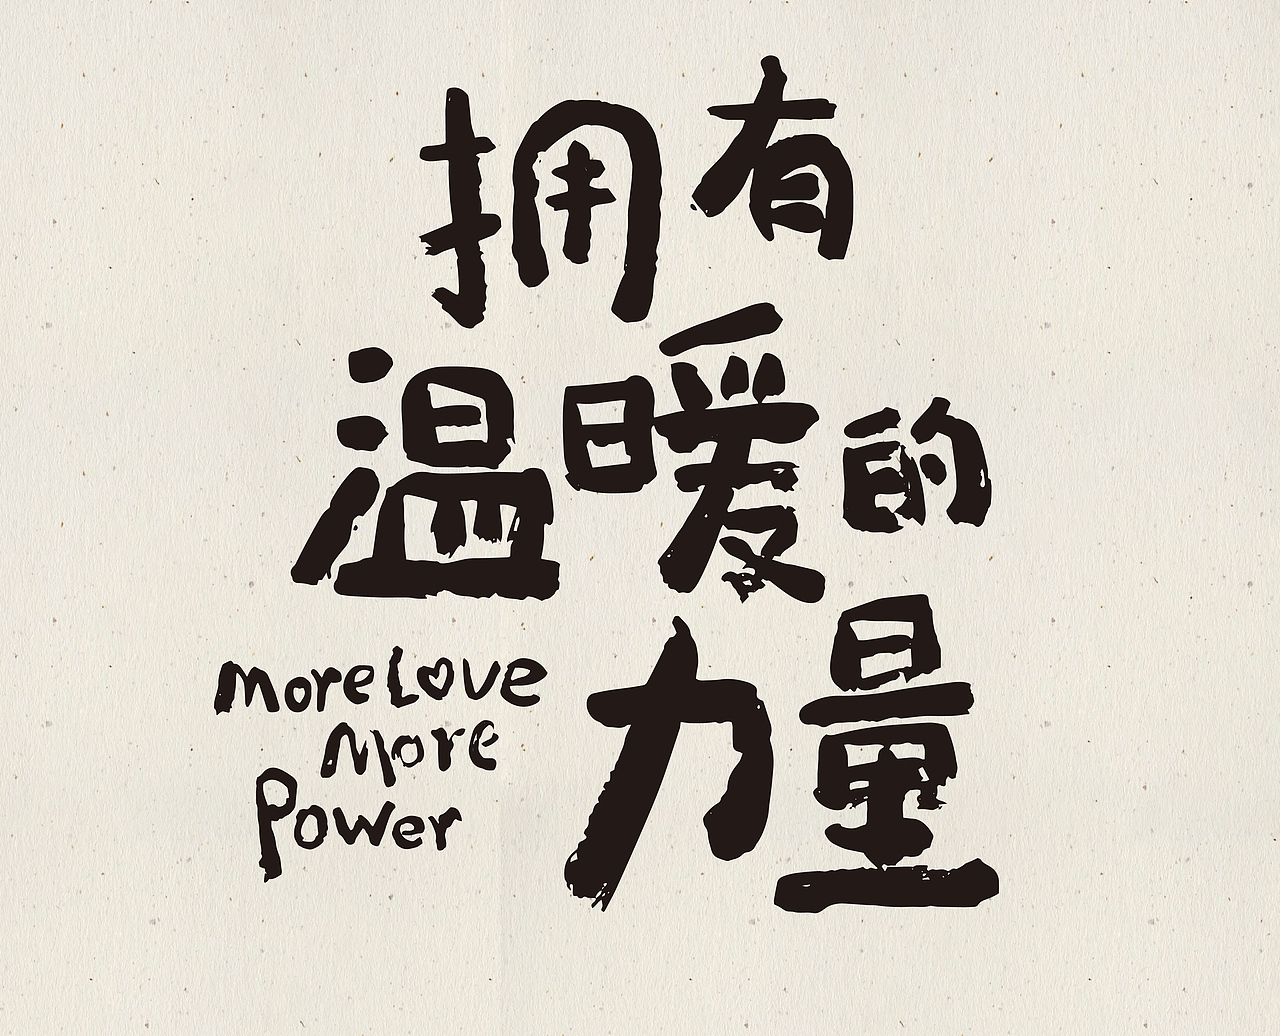 拥有
温暖的
力量
more Love
More
Power